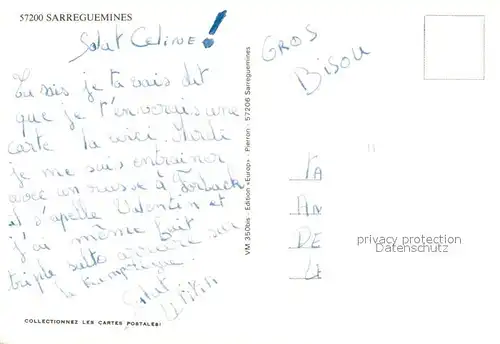 57200 SARREGUEMINES
Salut Celine!
Tu sais je ta vais dit
que je t'enverais une
carte la voici. Mardi
je me suis entrainer
avec un russe à Forbach
il s'apelle Valentin et
j'ai même fait
triple salto arrière sur
le trampoligne.
Salut
COLLECTIONNEZ LES CARTES POSTALES!
VM 350bis - Edition «Europ» - Pierron - 57206 Sarreguemines
GROS
BISOU
privacy protection
Datenschutz